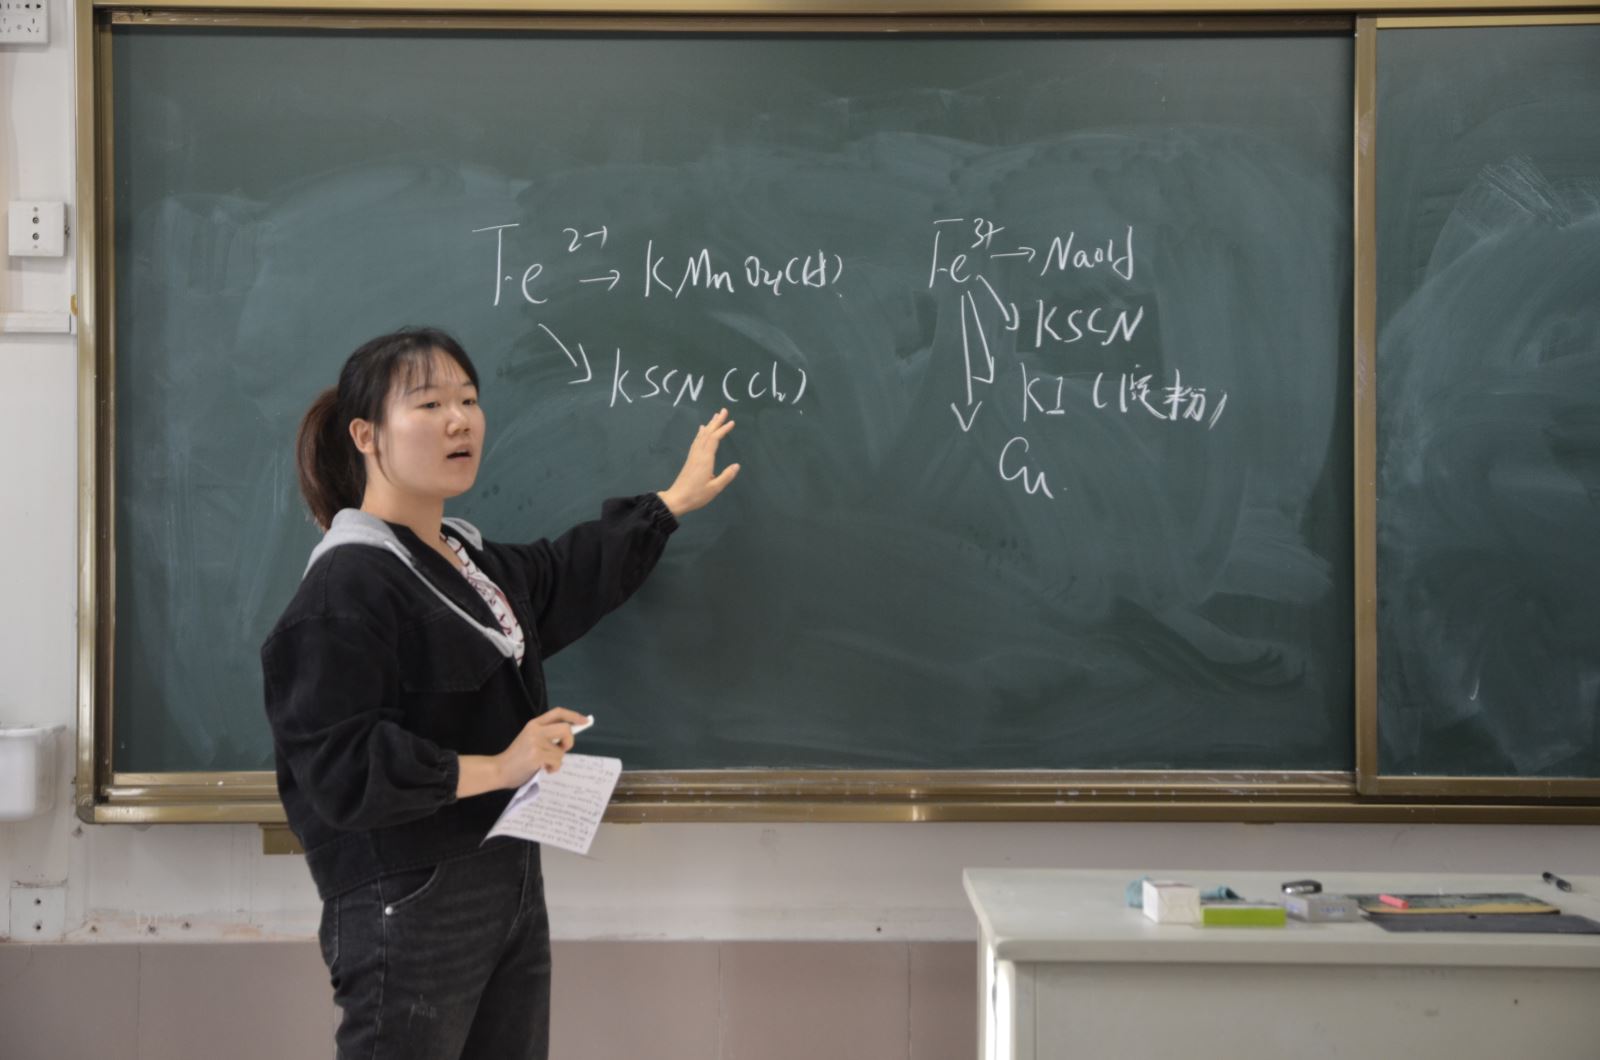 Fe²⁺ → KMnO₄(H)
KSCN (Cl₂)
Fe³⁺ → NaOH
KSCN
KI (淀粉)
Cu